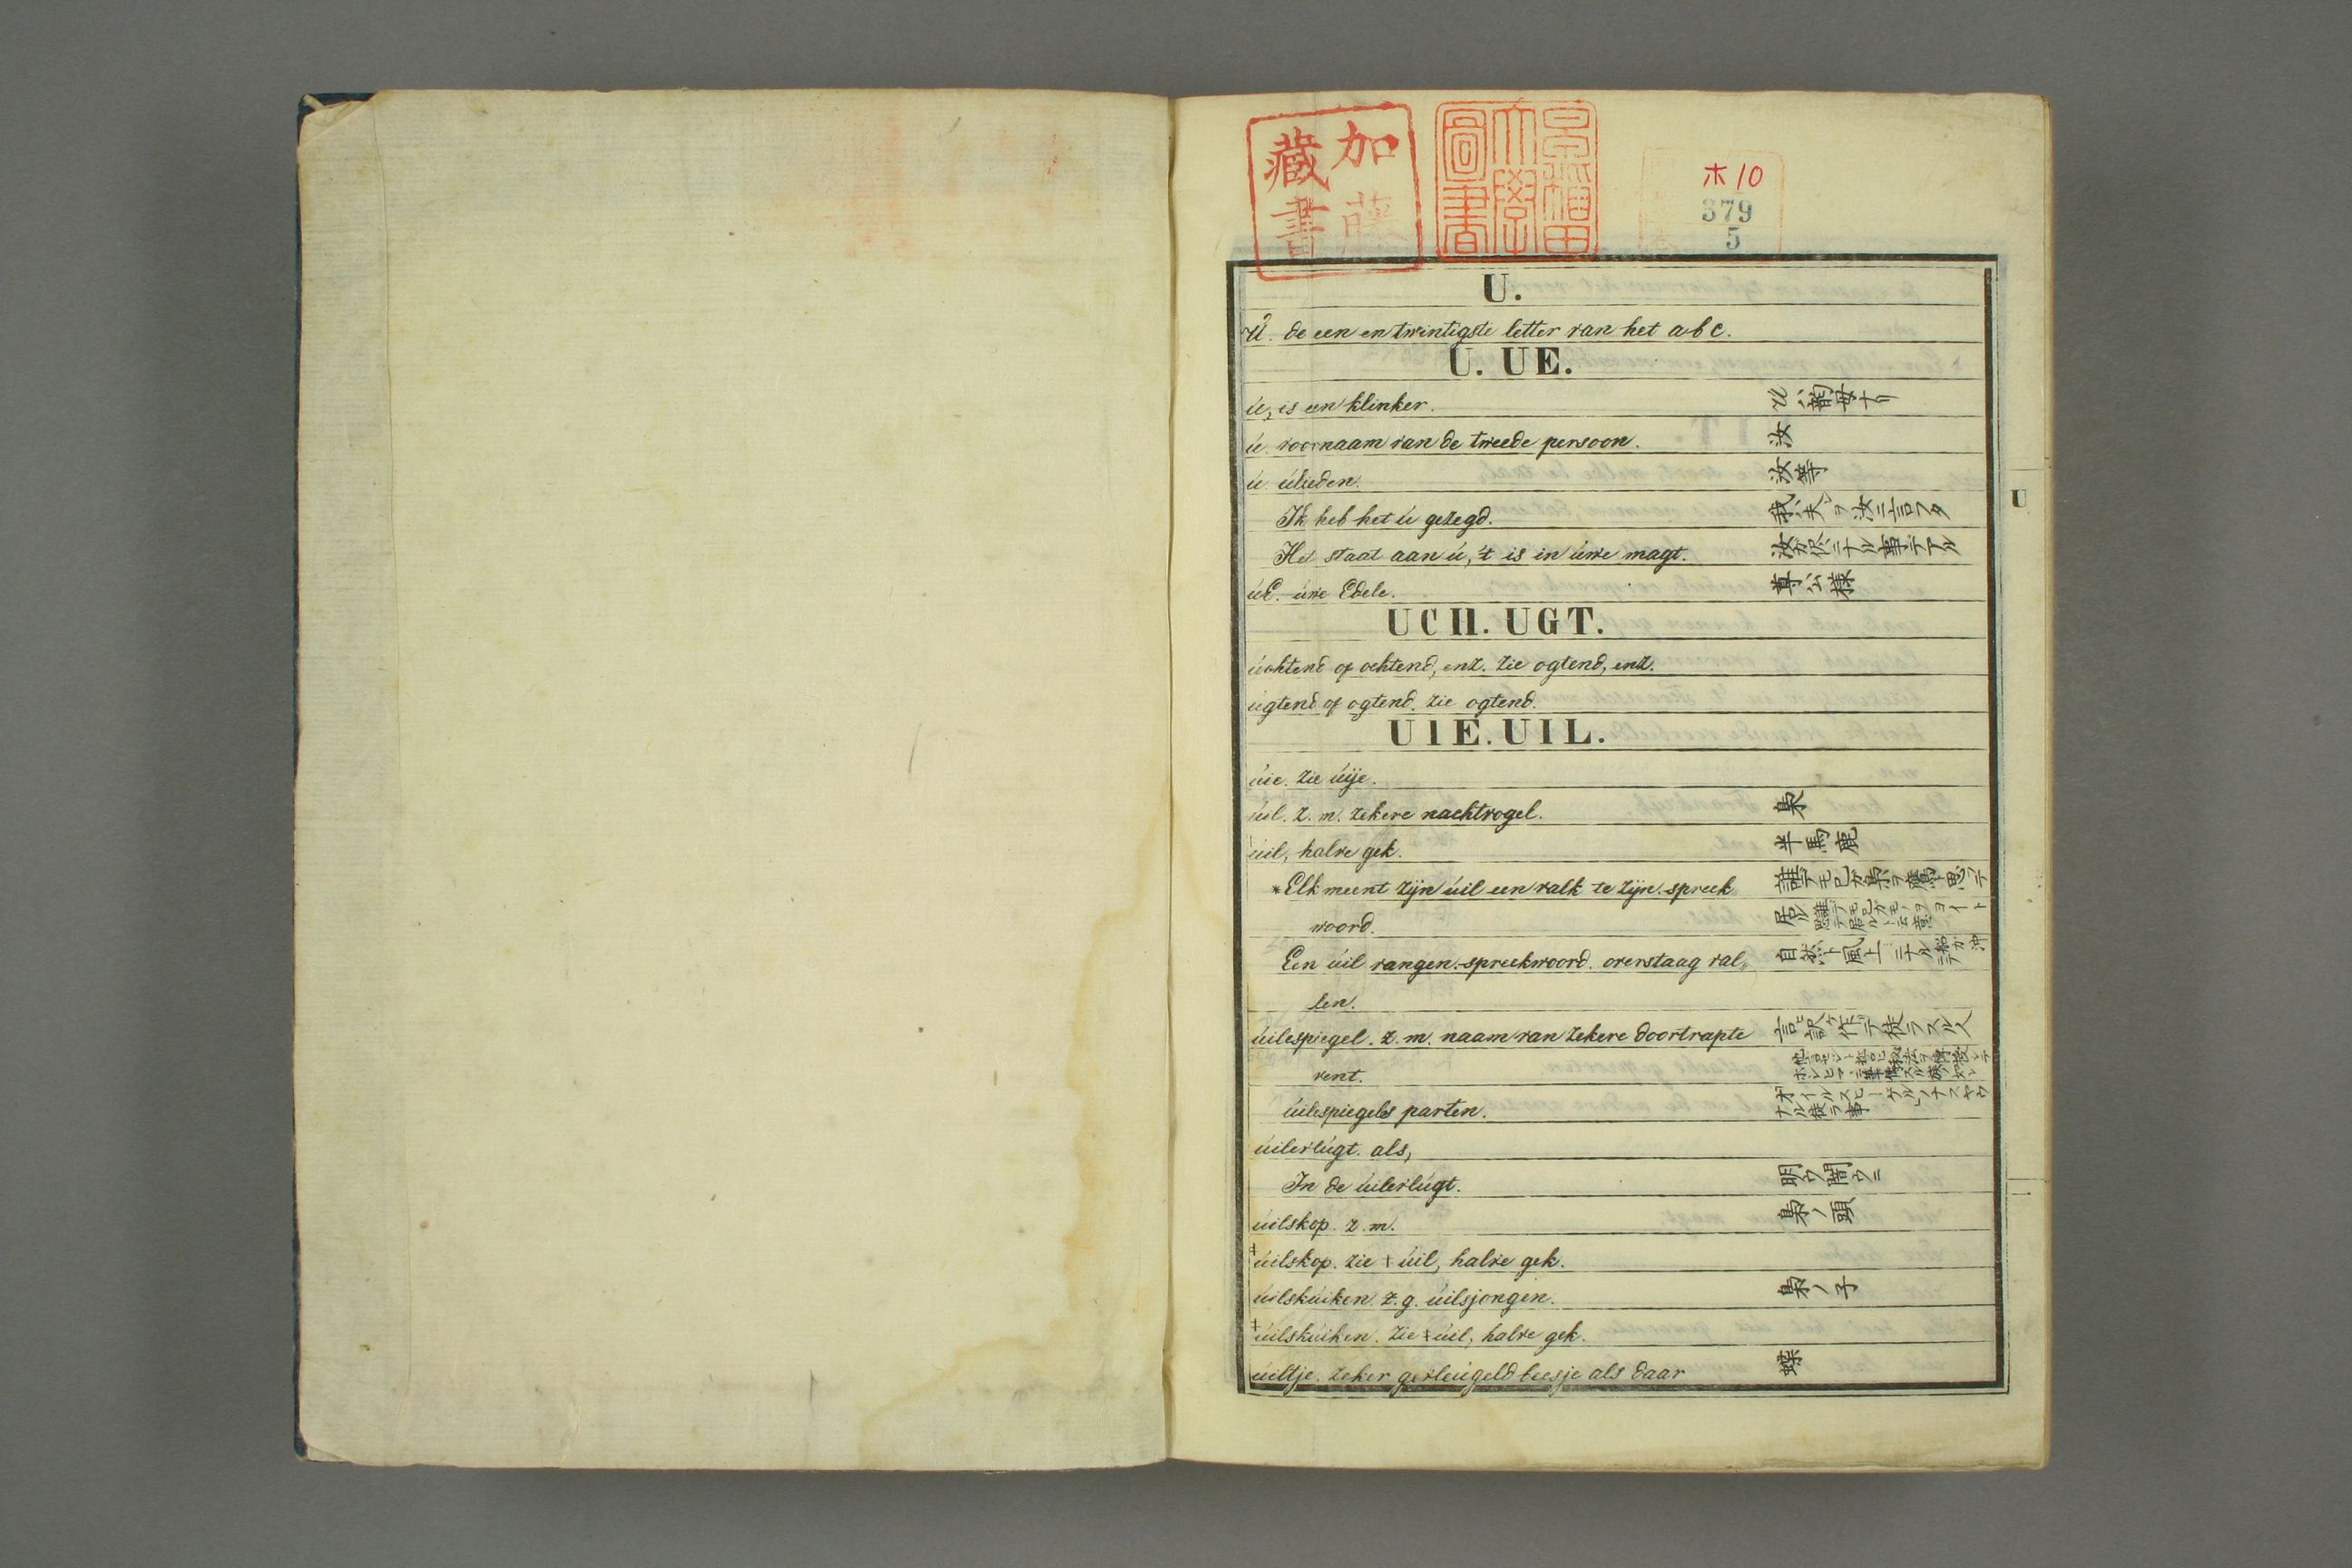 加藤
藏書
早稲田
大學
圖書
ホ10
379
5
U.
U. de een en twintigste letter van het a b c.
U. UE.
ú, is een klinker. U ハ韵母ナリ
ú. voornaam van de tweede persoon. 汝
ú. úlieden. 汝等
Ik heb het ú gezegd. 我ハ夫レヲ汝ニ言フタ
Het staat aan ú, 't is in úwe magt. 汝ガ侭ニナル事デアル
úE. úwe Edele. 尊公様
U
UCH. UGT.
úchtend of ochtend, enz. zie ogtend, enz.
úgtend of ogtend. zie ogtend.
UIE. UIL.
úie. zie úije.
úil. z. m. zekere nachtvogel. 梟
úil, halve gek. 半馬鹿
*Elk meent zijn úil een valk te zijn. spreek 誰デモ己ガ梟ヲ鷹ト思テ
woord. 居ル 誰デモ己ガモノヲヨイト思テ居ルト云意
Een úil vangen.-spreekwoord. overstaag val„ 自然ト風上ニナル
len.
úilespiegel. z. m. naam van zekere doortrapte 言訳ヲ作テ徒ラスル人
vent.
úilespiegels parten. オイルスピーゲルノナスヤウナル徒ラ事
úilevlúgt. als,
In de úilevlúgt. 明ウ闇ウニ
úilskop. z. m. 梟ノ頭
+úilskop. zie + úil, halve gek.
úilskúiken. z. g. úilsjongen. 梟ノ子
+úilskúiken. zie + úil, halve gek.
úiltje. zeker gevleúgeld beesje als daar 蝶